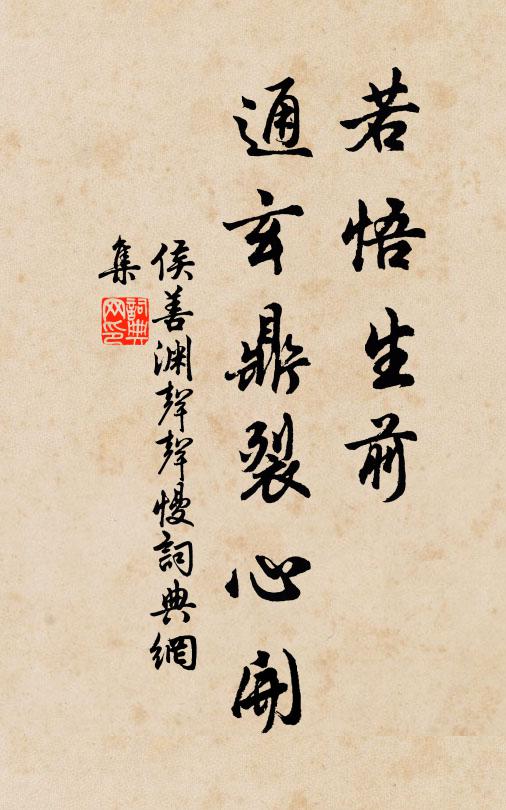 若悟生前
通玄鼎裂心開
侯善淵聲聲慢詞典網
集
詞典网印